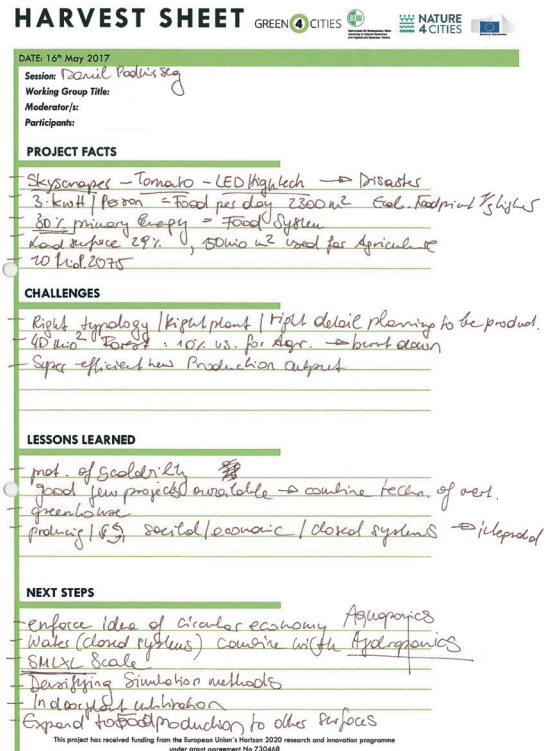 HARVEST SHEET GREEN4CITIES NATURE 4CITIES
DATE: 16th May 2017
Session: Daniel
Working Group Title:
Moderator/s:
Participants:
PROJECT FACTS
- Skyscrapes - Tomato - LED Hightech → Disaster
- 3 kwH / Person = Food per day 2300 m² Ecol. Footprint higher
- 30% primary Energy = Food System
- Land surface 29%, 50 mio m² used for Agriculture
- 10 2075
CHALLENGES
- Right typology / Right plant / right detail planning to be product.
- 40 mio² Forest : 10% us. for Agr. → burnt down
- Super-efficient new Production output
LESSONS LEARNED
- of
- good few projects available → combine techn. of vert.
- greenhouse
- producing / social/economic / closed systems →
NEXT STEPS
- enforce idea of circular economy Aquaponics
- Water (closed systems) combine with Hydroponics
- SMLXL Scale
- Densifying Simulation methods
- Indoor plant
- Expand to Food production to other surfaces
This project has received funding from the European Union's Horizon 2020 research and innovation programme
under grant agreement No 730468